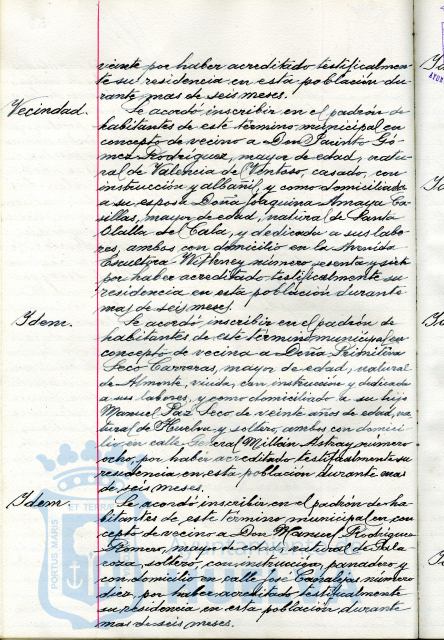 veinte por haber acreditado testificalmen-
te su residencia en esta población du-
rante mas de seis meses.
Vecindad. Se acordó inscribir en el padrón de
habitantes de este término municipal en
concepto de vecino a Don Jacinto Gó-
mez Rodríguez, mayor de edad, natu-
ral de Valencia de Ventoso, casado, con
instrucción y albañil, y como domiciliada
a su esposa Doña Joaquina Amaya Ca-
sillas, mayor de edad, natural de Santa
Olalla de Cala, y dedicada a sus labo-
res, ambos con domicilio en la Avenida
Escultora W. Whney número sesenta y siete
por haber acreditado testificalmente su
residencia en esta población durante
mas de seis meses.
Idem. Se acordó inscribir en el padrón de
habitantes de este término municipal en
concepto de vecina a Doña Primitiva
Seco Carreras, mayor de edad, natural
de Almonte, viuda, con instrucción y dedicada
a sus labores, y como domiciliado a su hijo
Manuel Paz Seco de veinte años de edad, na-
tural de Huelva y soltero, ambos con domici-
lio en calle General Millán Astray número
ocho, por haber acreditado testificalmente su
residencia en esta población durante mas
de seis meses.
Idem. Se acordó inscribir en el padrón de ha-
bitantes de este término municipal en con-
cepto de vecino a Don Manuel Rodríguez
Romero, mayor de edad, natural de
soltero, con instrucción, panadero y
con domicilio en calle José Canalejas número
por haber acreditado testificalmente
su residencia en esta población durante
mas de seis meses.
PORTUS MARIS
ET TERR